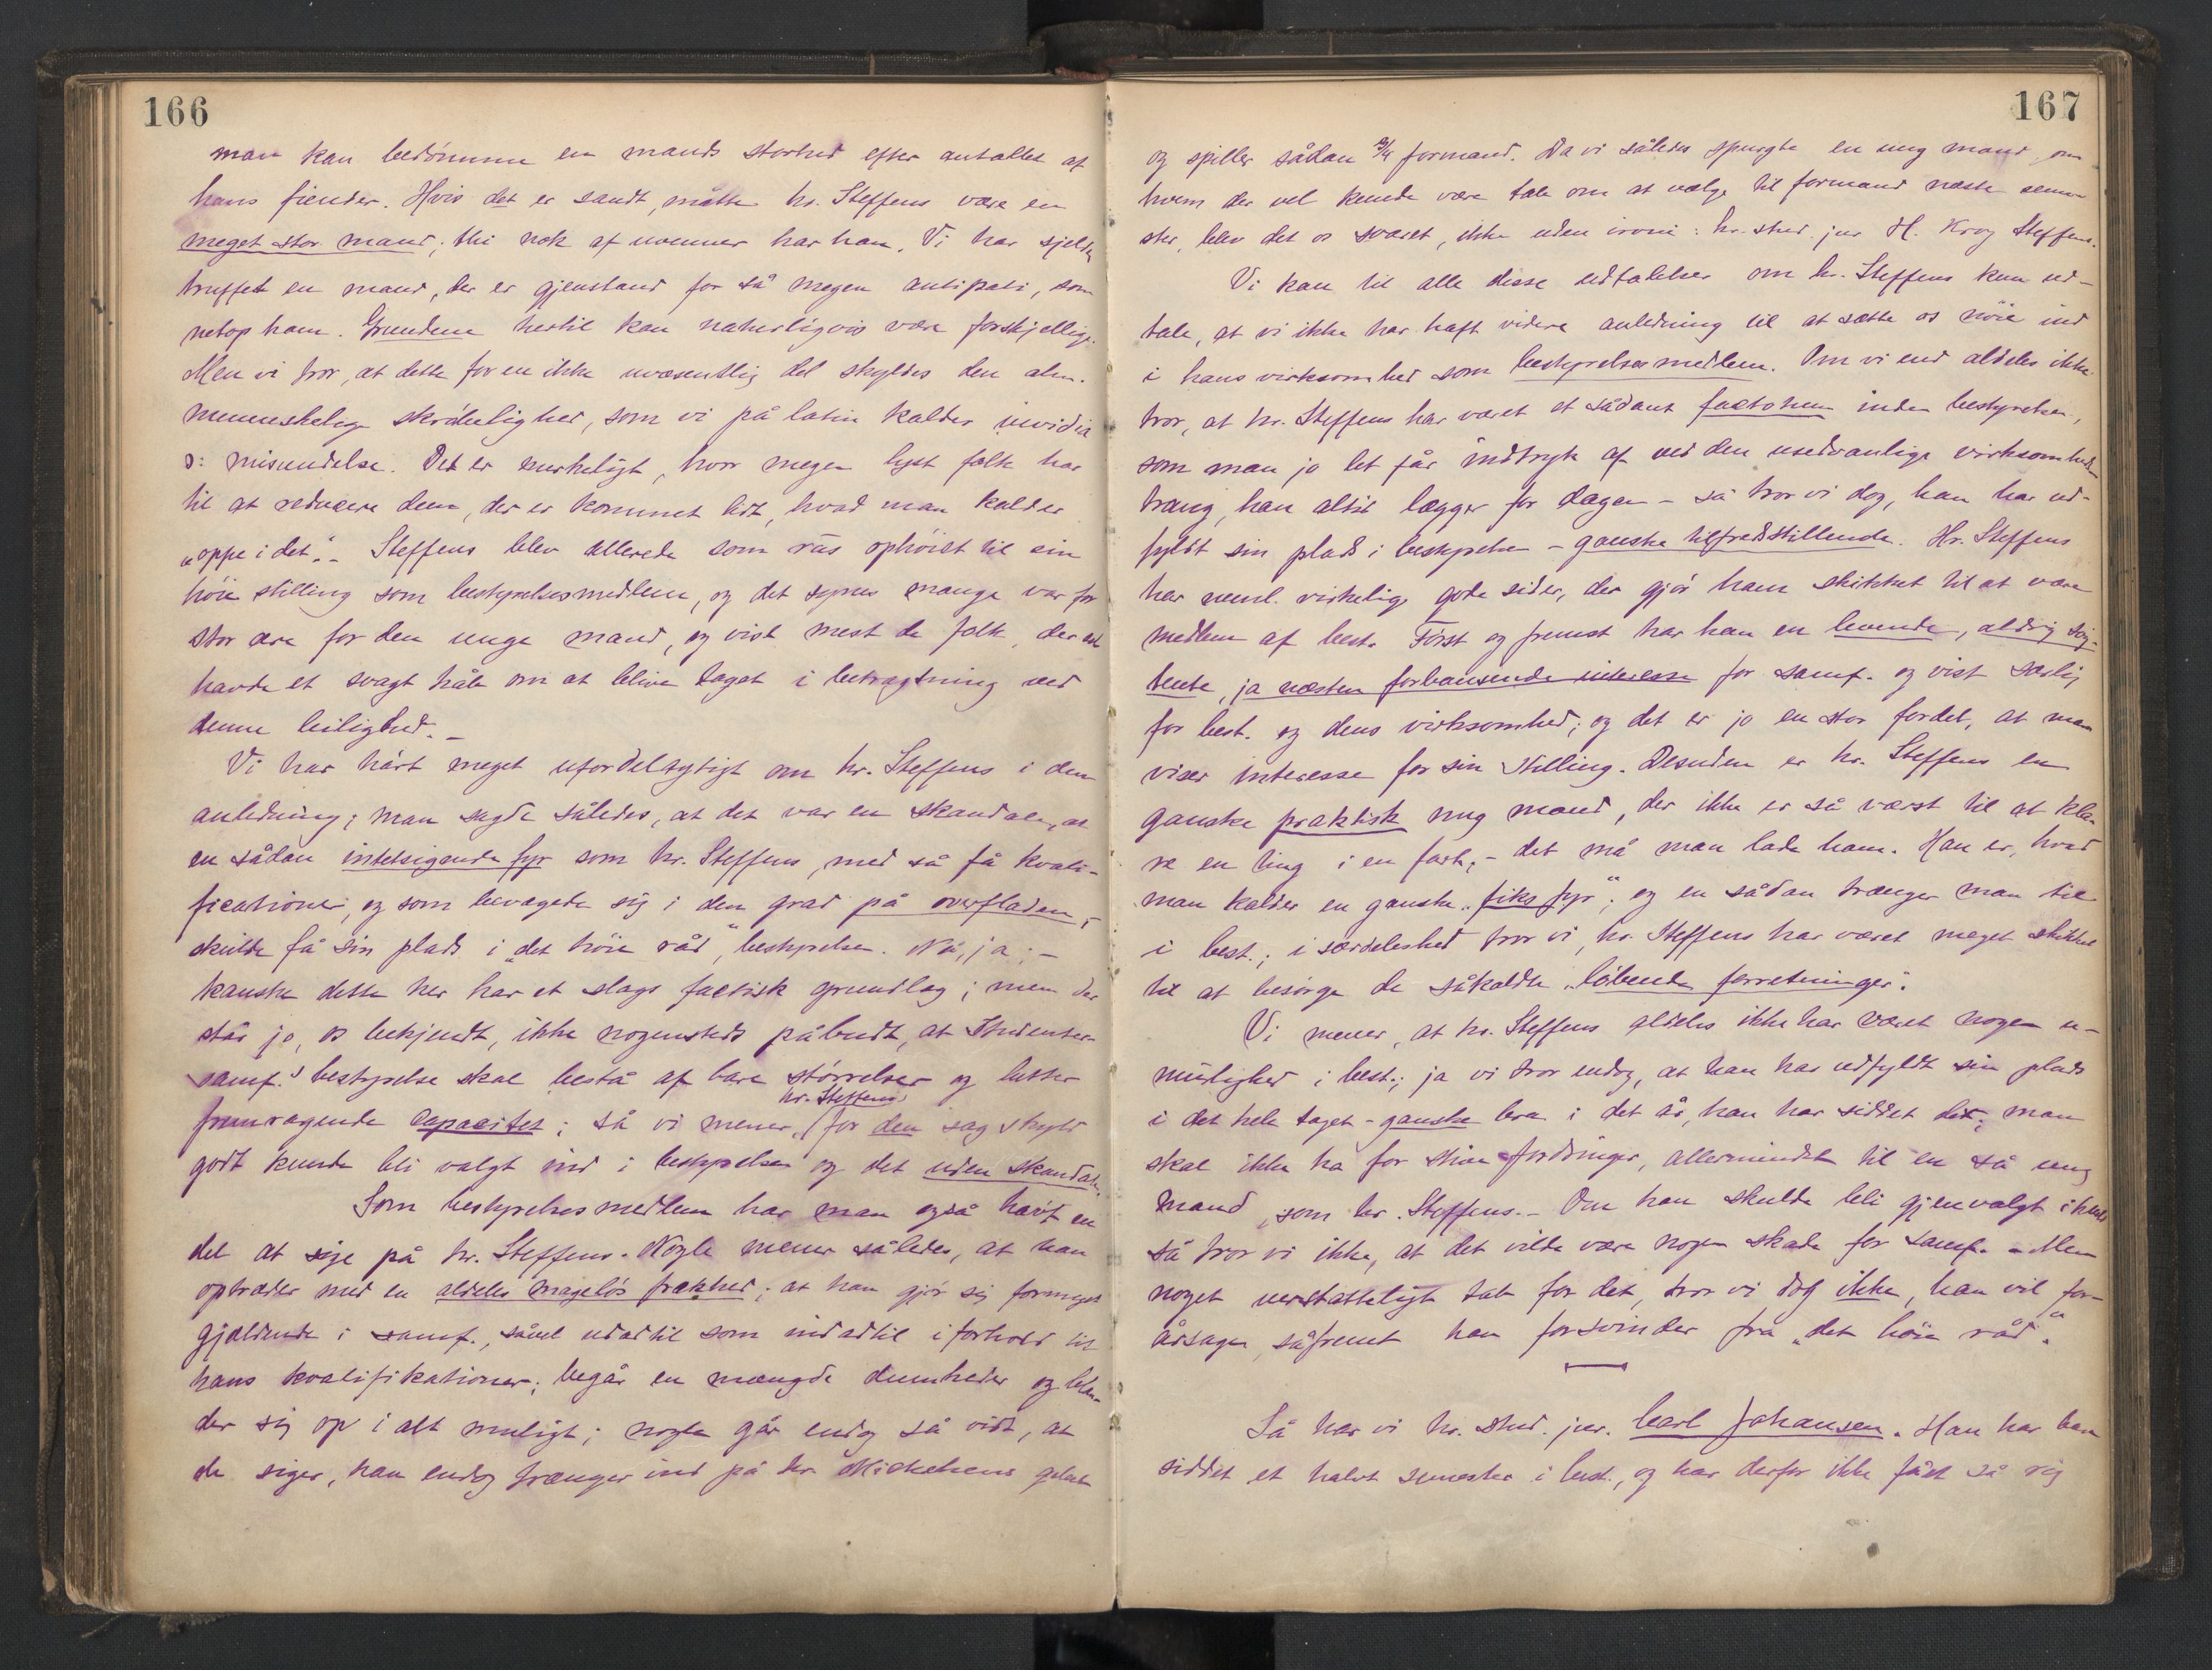 166
man kan bedömme en mands storhed efter antallet af
hans fiender. Hvis det er sandt, måtte hr. Steffens være en
meget stor mand; thi nok af uvenner har han. Vi har sjelden
truffet en mand, der er gjenstand for så megen antipati, som
netop ham. Grundene hertil kan naturligvis være forskjellige.
Men vi tror, at dette for en ikke uvæsentlig del skyldes den alm.
menneskelige skröbelighed, som vi på latin kalder invidia
ɔ: misundelse. Det er merkeligt, hvor megen lyst folk har
til at reducere dem, der er kommet lidt, hvad man kalder
„oppe i det“. - Steffens blev allerede som rus ophöiet til sin
höie stilling som bestyrelsesmedlem, og det synes mange var for
stor ære for den unge mand, og vist mest de folk, der selv
havde et svagt håb om at blive taget i betragtning ved
denne leilighed. -
Vi har hört meget ufordelagtigt om hr. Steffens i den
anledning; man sagde således, at det var en skandale, at
en sådan intetsigende fyr som hr. Steffens, med så få kvali-
ficationer, og som bevægede sig i den grad på overfladen, -
skulde få sin plads i „det höie råd“, bestyrelsen. Nå, ja; -
kanske dette her har et slags factisk grundlag; men der
står jo, os bekjendt, ikke nogensteds påbudt, at Studenter-
samf.s bestyrelse skal bestå af bare störrelser og lutter
hr. Steffens
fremragende capacitet; så vi mener, for den sag skyld
godt kunde bli valgt ind i bestyrelsen og det uden skandale.
Som bestyrelsesmedlem har man også havt en
del at sige på hr. Steffens. Nogle mener således, at han
optræder med en aldeles mageløs frækhed; at han gjör sig formeget
gjældende i samf., såvel udadtil som indadtil i forhold til
hans kvalifikationer; begår en mængde dumheder og blan-
der sig op i alt muligt; nogle går endog så vidt, at
de siger, han endog trænger ind på hr. Mickelsens gebet
167
og spiller sådan 3/4 formand. Da vi således spurgte en ung mand, om
hvem der vel kunde være tale om at vælge til formand næste seme-
ster, blev det os svaret, ikke uden ironi: hr. stud. jur. H. Krog Steffens.
Vi kan til alle disse udtalelser om hr. Steffens kun ud-
tale, at vi ikke har haft videre anledning til at sætte os nöie ind
i hans virksomhed som bestyrelsesmedlem. Om vi end aldeles ikke
tror, at hr. Steffens har været et sådant factotum inden bestyrelsen,
som man jo let får indtryk af ved den usedvanlige virksomheds-
trang, han altid lægger for dagen - så tror vi dog, han har ud-
fyldt sin plads i bestyrelsen - ganske tilfredsstillende. Hr. Steffens
har neml. virkelige gode sider, der gjör ham skikket til at være
medlem af best. Först og fremst har han en levende, aldrig svig-
tende, ja næsten forbausende interesse for samf. og vist særlig
for best. og dens virksomhed; og det er jo en stor fordel, at man
viser interesse for sin stilling. Desuden er hr. Steffens en
ganske praktisk ung mand, der ikke er så værst til at kla-
re en ting i en fart, - det må man lade ham. Han er, hvad
man kalder en ganske „fiks fyr“; og en sådan trænger man til
i best.; i særdeleshed tror vi, hr. Steffens har været meget skikket
til at besörge de såkaldte „löbende forretninger“.
Vi mener, at hr. Steffens aldeles ikke har været nogen u-
mulighed i best.; ja vi tror endog, at han har udfyldt sin plads
i det hele taget - ganske bra i det år, han har siddet der; man
skal ikke ha for store fordringer, allermindst til en så ung
mand, som hr. Steffens. - Om han skulde bli gjenvalgt i höst
så tror vi ikke, at det vilde være nogen skade for samf. - Men
noget uerstatteligt tab for det, tror vi dog ikke, han vil for-
årsage, såfremt han forsvinder fra „det höie råd“.
Så har vi hr. stud. jur. Carl Johansen. Han har bare
siddet et halvt semester i best., og har derfor ikke fået så rig